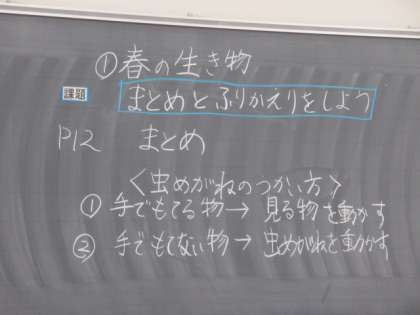 ①春の生き物
課題 まとめとふりかえりをしよう
P12 まとめ
〈虫めがねのつかい方〉
①手でもてる物→見る物を動かす
②手でもてない物→虫めがねを動かす